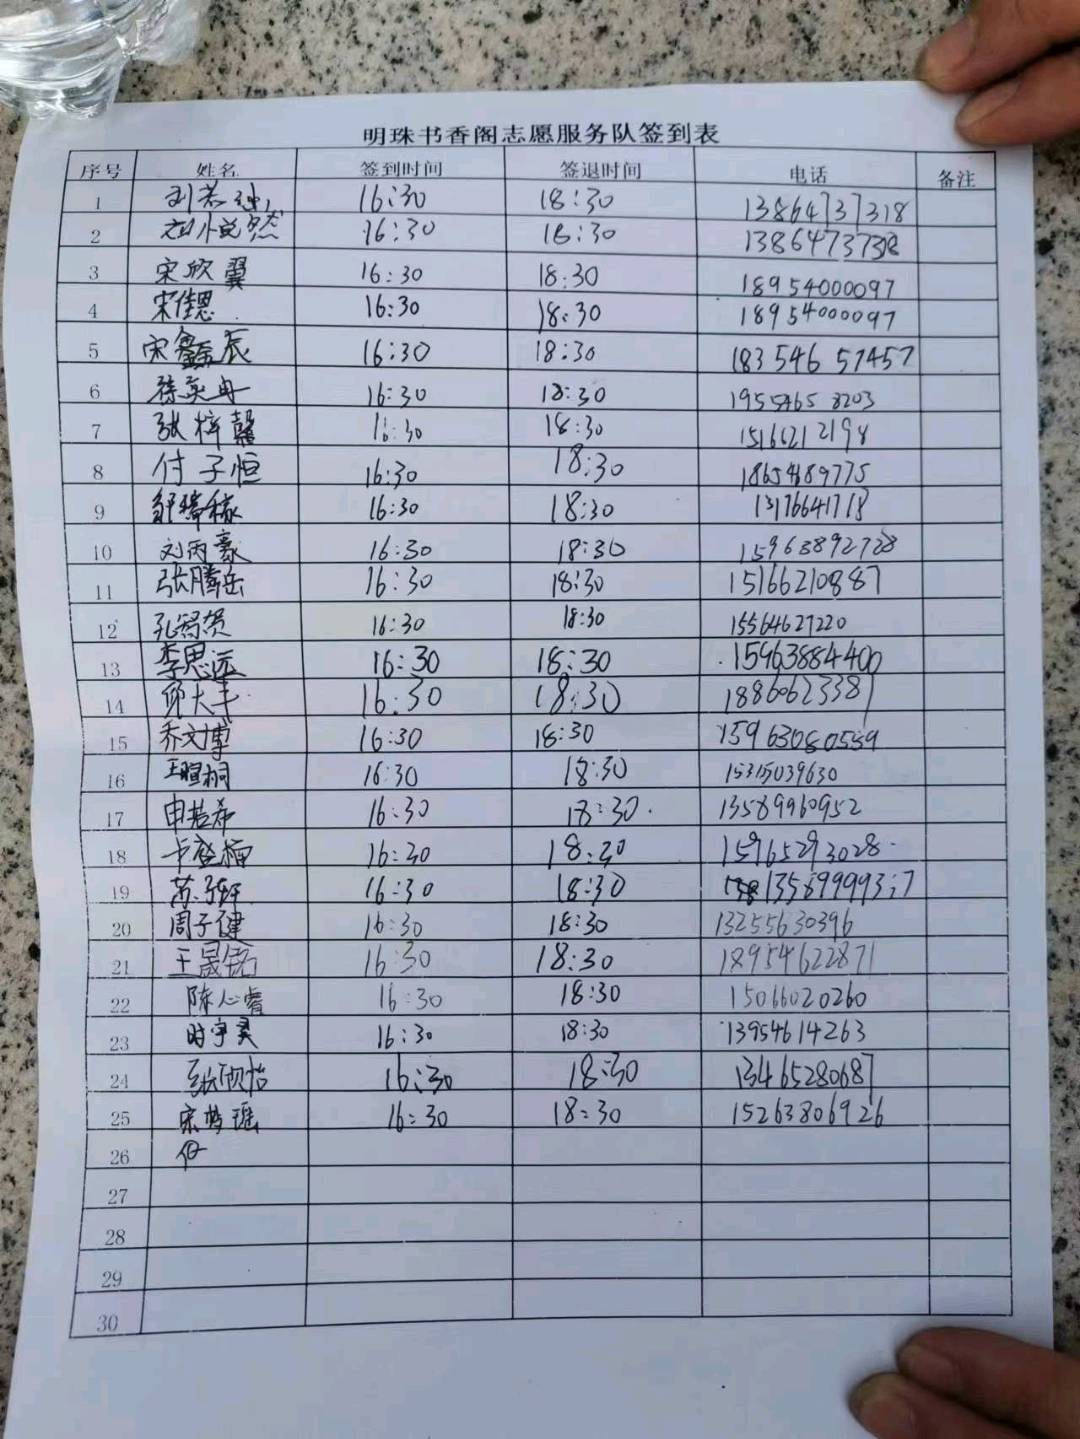 明珠书香阁志愿服务队签到表
序号 姓名 签到时间 签退时间 电话 备注
1 16:30 18:30 13864737318
2 16:30 18:30 13864737318
3 宋欣翼 16:30 18:30 18954000097
4 宋佳思 16:30 18:30 18954000097
5 宋鑫辰 16:30 18:30 18354657457
6 徐英冉 16:30 18:30 19554658203
7 张梓馨 16:30 18:30 15166212198
8 付子恒 16:30 18:30 18654689775
9 16:30 18:30
10 刘丙豪 16:30 18:30 15963892728
11 张腾岳 16:30 18:30 15166210887
12 16:30 18:30 15564627220
13 李思远 16:30 18:30 15963884400
14 16:30 18:30 18860623381
15 乔文博 16:30 18:30 15963080559
16 王瑄桐 16:30 18:30 15315039630
17 申若希 16:30 18:30 13589960952
18 16:30 18:30 15965293028
19 苏子轩 16:30 18:30
20 周子健 16:30 18:30 13255630396
21 王晟铭 16:30 18:30 18954622871
22 陈心睿 16:30 18:30 15066020260
23 时宇昊 16:30 18:30 13954614263
24 张欣怡 16:30 18:30 13465280687
25 宋梦瑶 16:30 18:30 15263806926
26
27
28
29
30